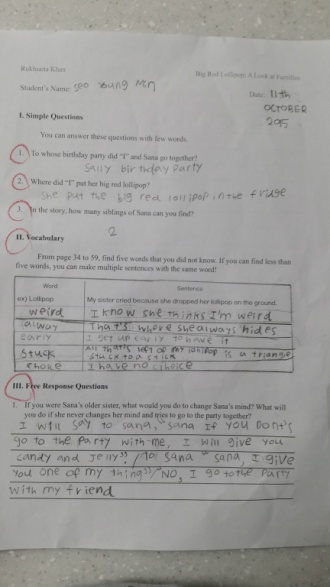 Rukhsana Khan
Big Red Lollipop: A Look at Families
Student's Name: Seo Young Min
Date: 11th
OCTOBER
2015
I. Simple Questions
You can answer these questions with few words.
1. To whose birthday party did "I" and Sana go together?
Sally birthday Party
2. Where did "I" put her big red lollipop?
She put the big red lollipop in the fridge
3. In the story, how many siblings of Sana can you find?
2
II. Vocabulary
From page 34 to 59, find five words that you did not know. If you can find less than
five words, you can make multiple sentences with the same word!
Word Sentence
ex) Lollipop My sister cried because she dropped her lollipop on the ground.
weird I know she thinks I'm weird
always That's where she always hides
early I get up early to have it
stuck All that's left of my lollipop is a triangle
stuck to a stick
choke I have no choice
III. Free Response Questions
1. If you were Sana's older sister, what would you do to change Sana's mind? What will
you do if she never changes her mind and tries to go to the party together?
I will say to sana, "sana If you Dont's
go to the Party with me, I will give you
candy and Jelly" / To sana " sana, I give
you one of my thing" / NO, I go to the Party
with my friend